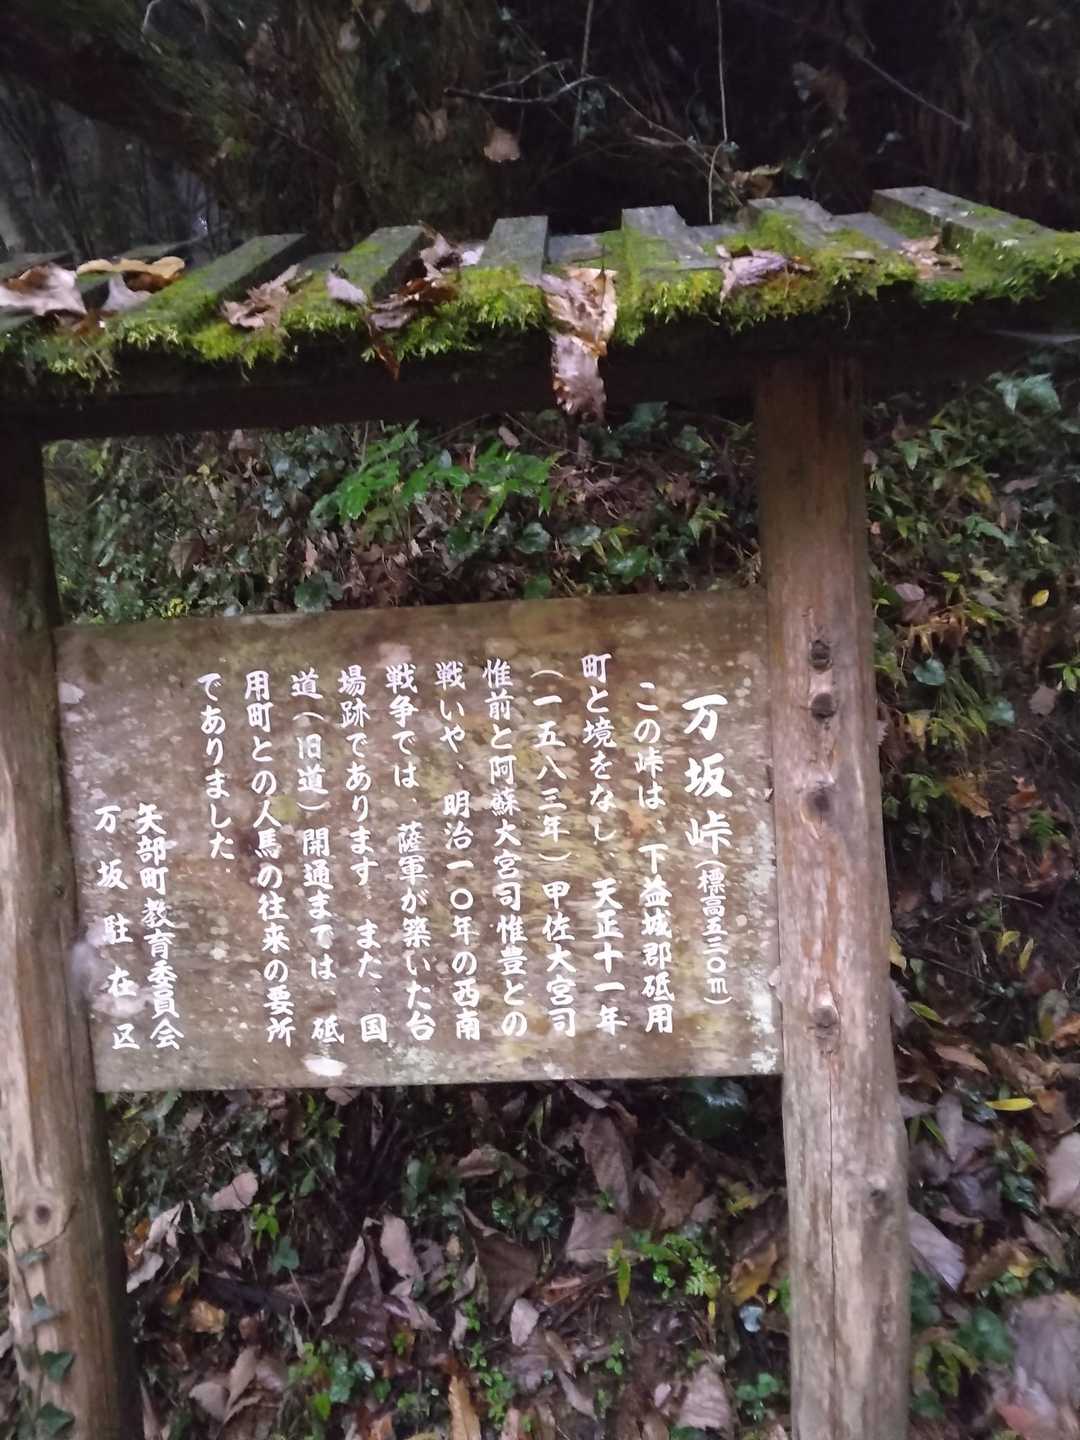 万坂峠(標高五三〇m)
この峠は、下益城郡砥用
町と境をなし、天正十一年
(一五八三年)甲佐大宮司
惟前と阿蘇大宮司惟豊との
戦いや、明治一〇年の西南
戦争では、薩軍が築いた台
場跡であります。また、国
道(旧道)開通までは、砥
用町との人馬の往来の要所
でありました。
矢部町教育委員会
万坂駐在区